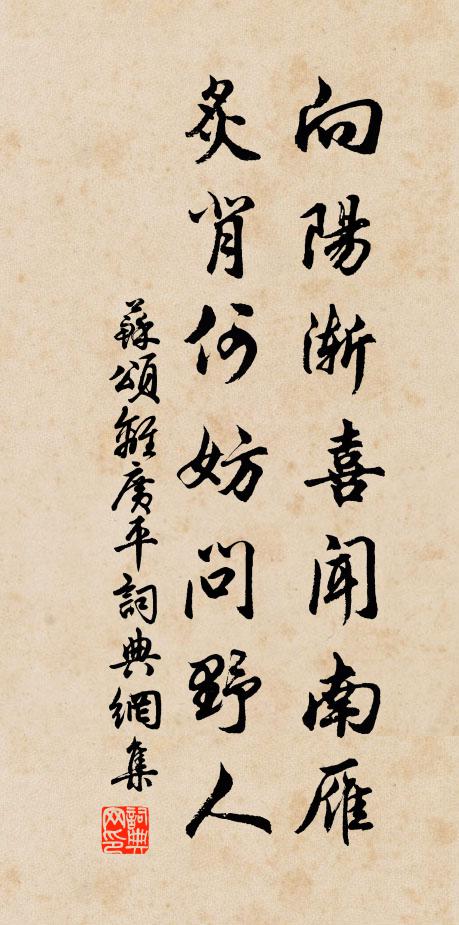 向陽漸喜聞南雁
炙背何妨問野人
蘇頌離廣平詞典網集
詞典网印